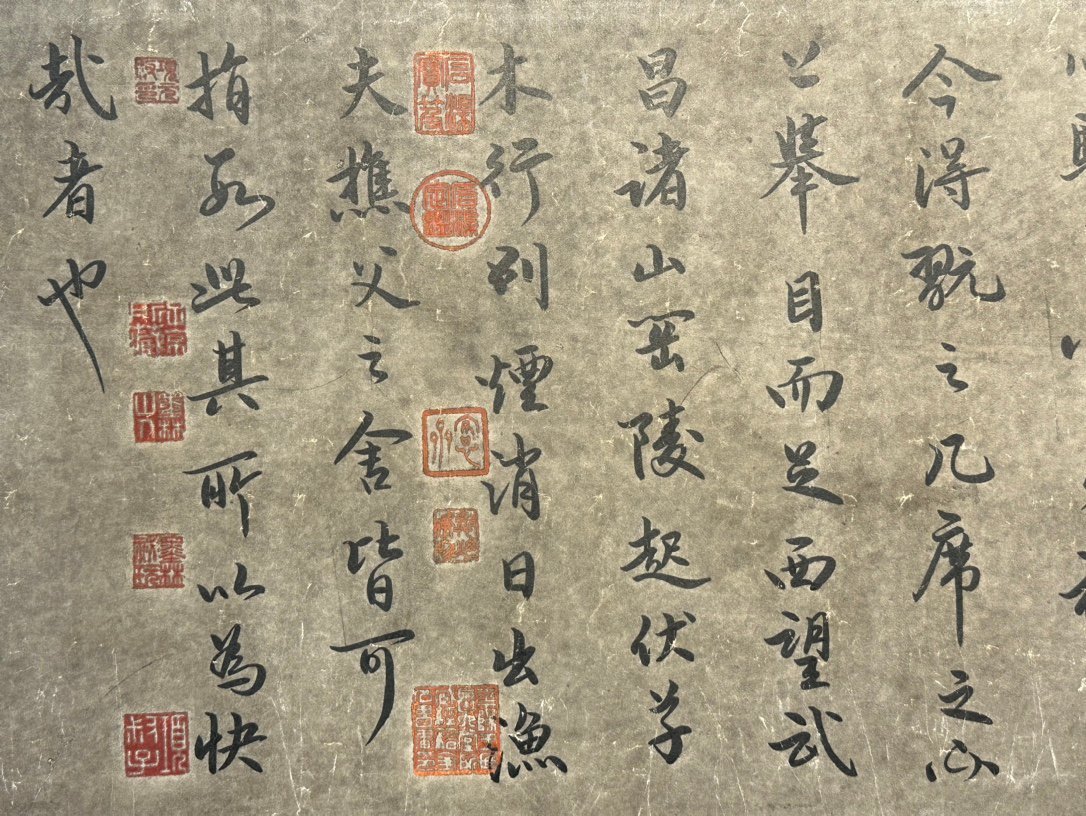 今得翫之几席之心
上舉目而足西望武
昌諸山岡陵起伏草
木行列煙消日出漁
夫樵父之舍皆可
指數此其所以為快
哉者也